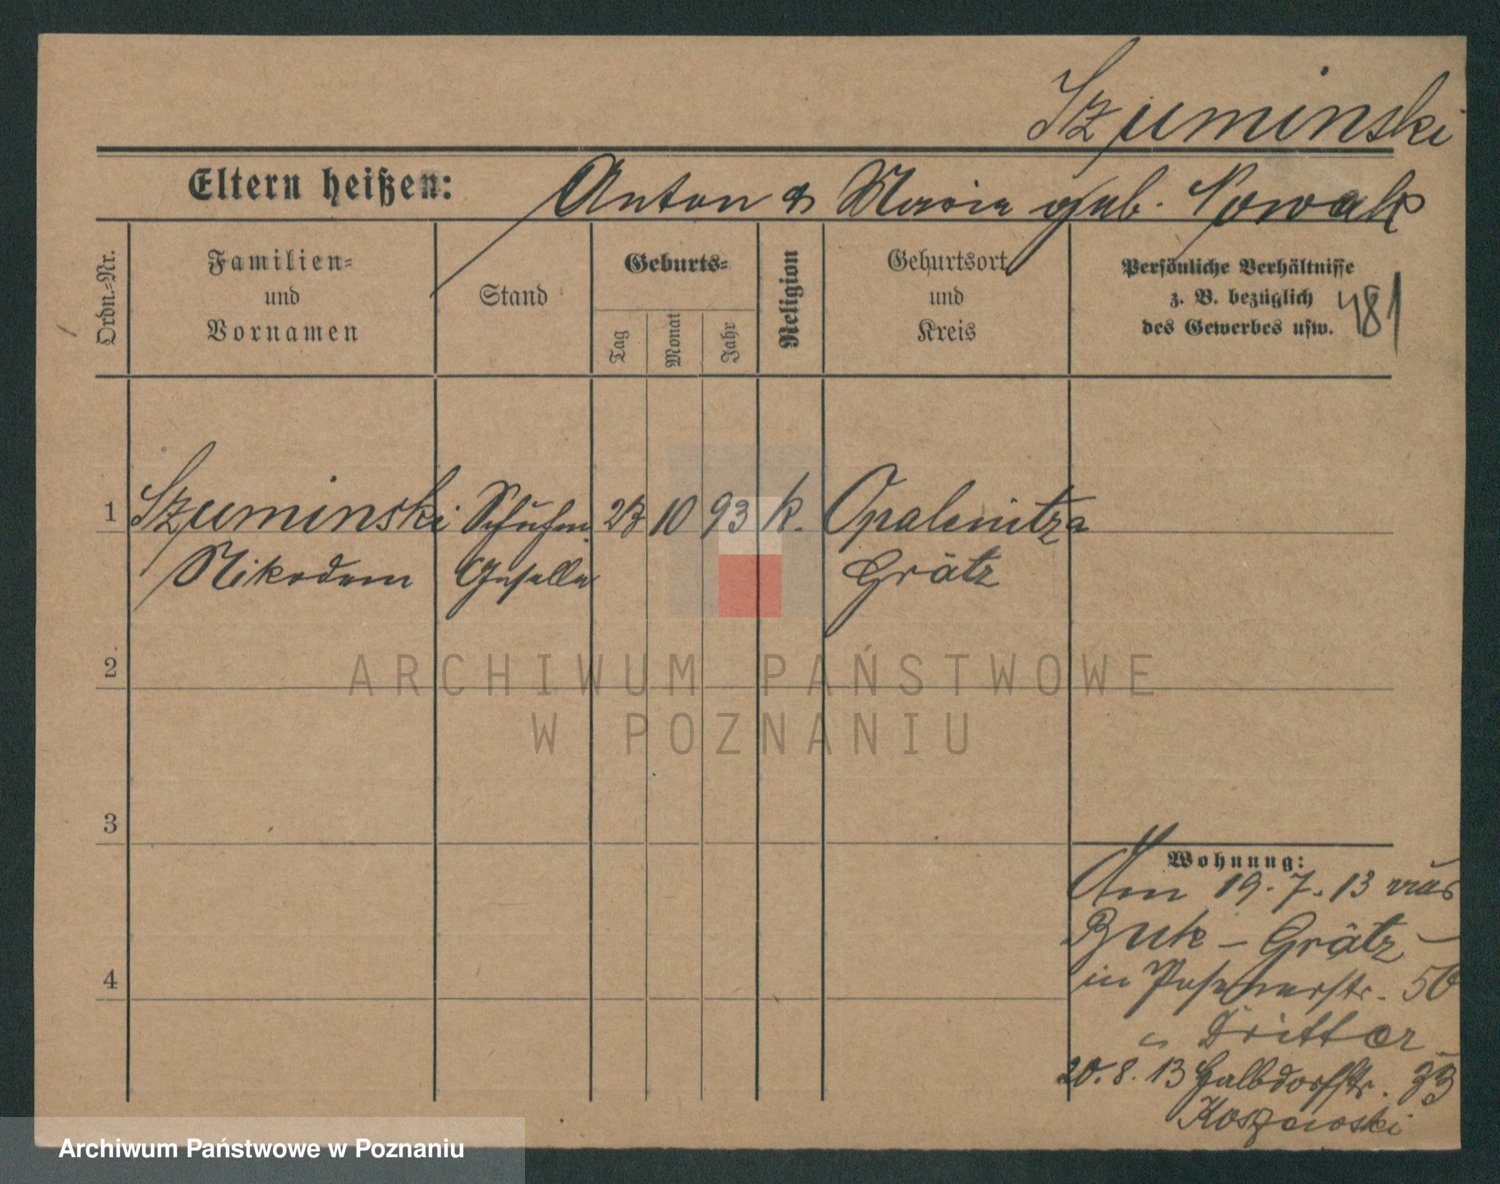 Szuminski
Eltern heißen: Anton & Maria geb. Nowak
Ordn.-Nr.
Familien-
und
Vornamen
Stand
Geburts-
Tag
Monat
Jahr
Religion
Geburtsort
und
Kreis
Persönliche Verhältnisse
z. B. bezüglich
des Gewerbes usw.
481
1 Szuminski Schuhm. 23 10 93 k. Opalenitza
Nikodem Geselle Grätz
2
3
4
Wohnung:
Am 19.7.13 aus
Buk - Grätz
in Posenerstr. 50
" Dritter
20.8.13 Halbdorfstr. 33
ARCHIWUM PAŃSTWOWE
W POZNANIU
Archiwum Państwowe w Poznaniu